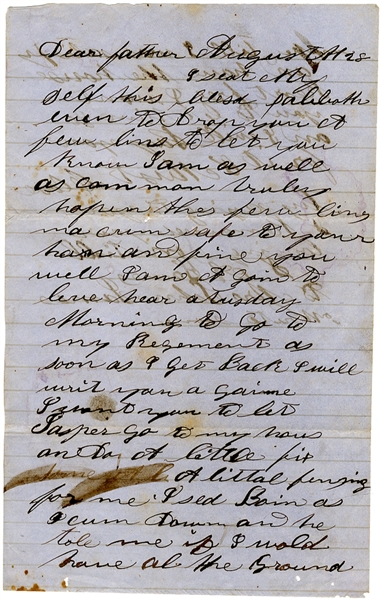 Dear father August th 28
I seat My
self this blesd sabboth
even to drop you A
few lins to let you
know I am as well
as common truley
hopin thes few lins
ma cum safe to your
han and fine you
well I am A goin to
leve hear a tusday
Morning to go to
my Regement as
soon as I get back I will
writ you a gaine
I want you to let
Jasper go to my hous
an Do A little fix
A littal fencing
for me I sed Boin as
I cum Down and he
tole me if I wold
have al the Ground